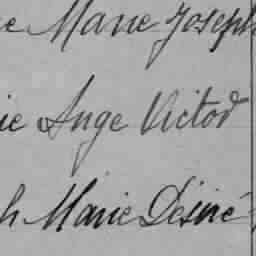 e Marie Joseph
ie Ange Victor
h Marie Désiré